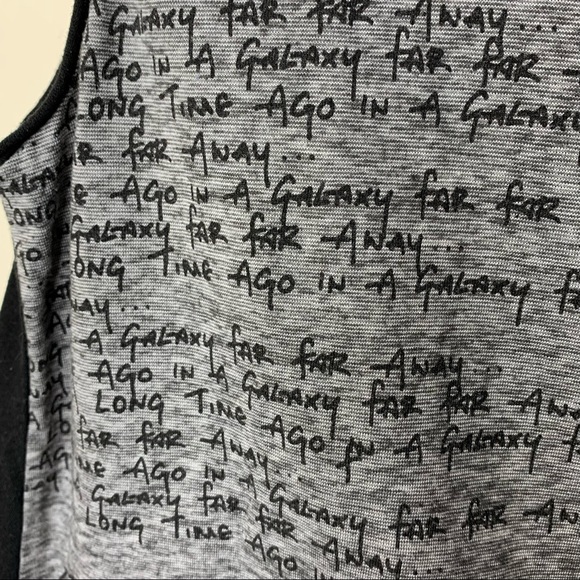 GALAXY FAR FAR AWAY...
AGO IN A GALAXY FAR FAR
LONG TIME AGO IN A GALAXY
FAR AWAY...
AGO IN A GALAXY FAR FAR
GALAXY FAR FAR AWAY...
LONG TIME AGO IN A GALAXY
A GALAXY FAR FAR AWAY...
AGO IN A GALAXY FAR FAR
LONG TIME AGO IN A GALAXY
FAR FAR AWAY...
AGO IN A GALAXY FAR FAR
A GALAXY FAR FAR AWAY...
LONG TIME AGO IN